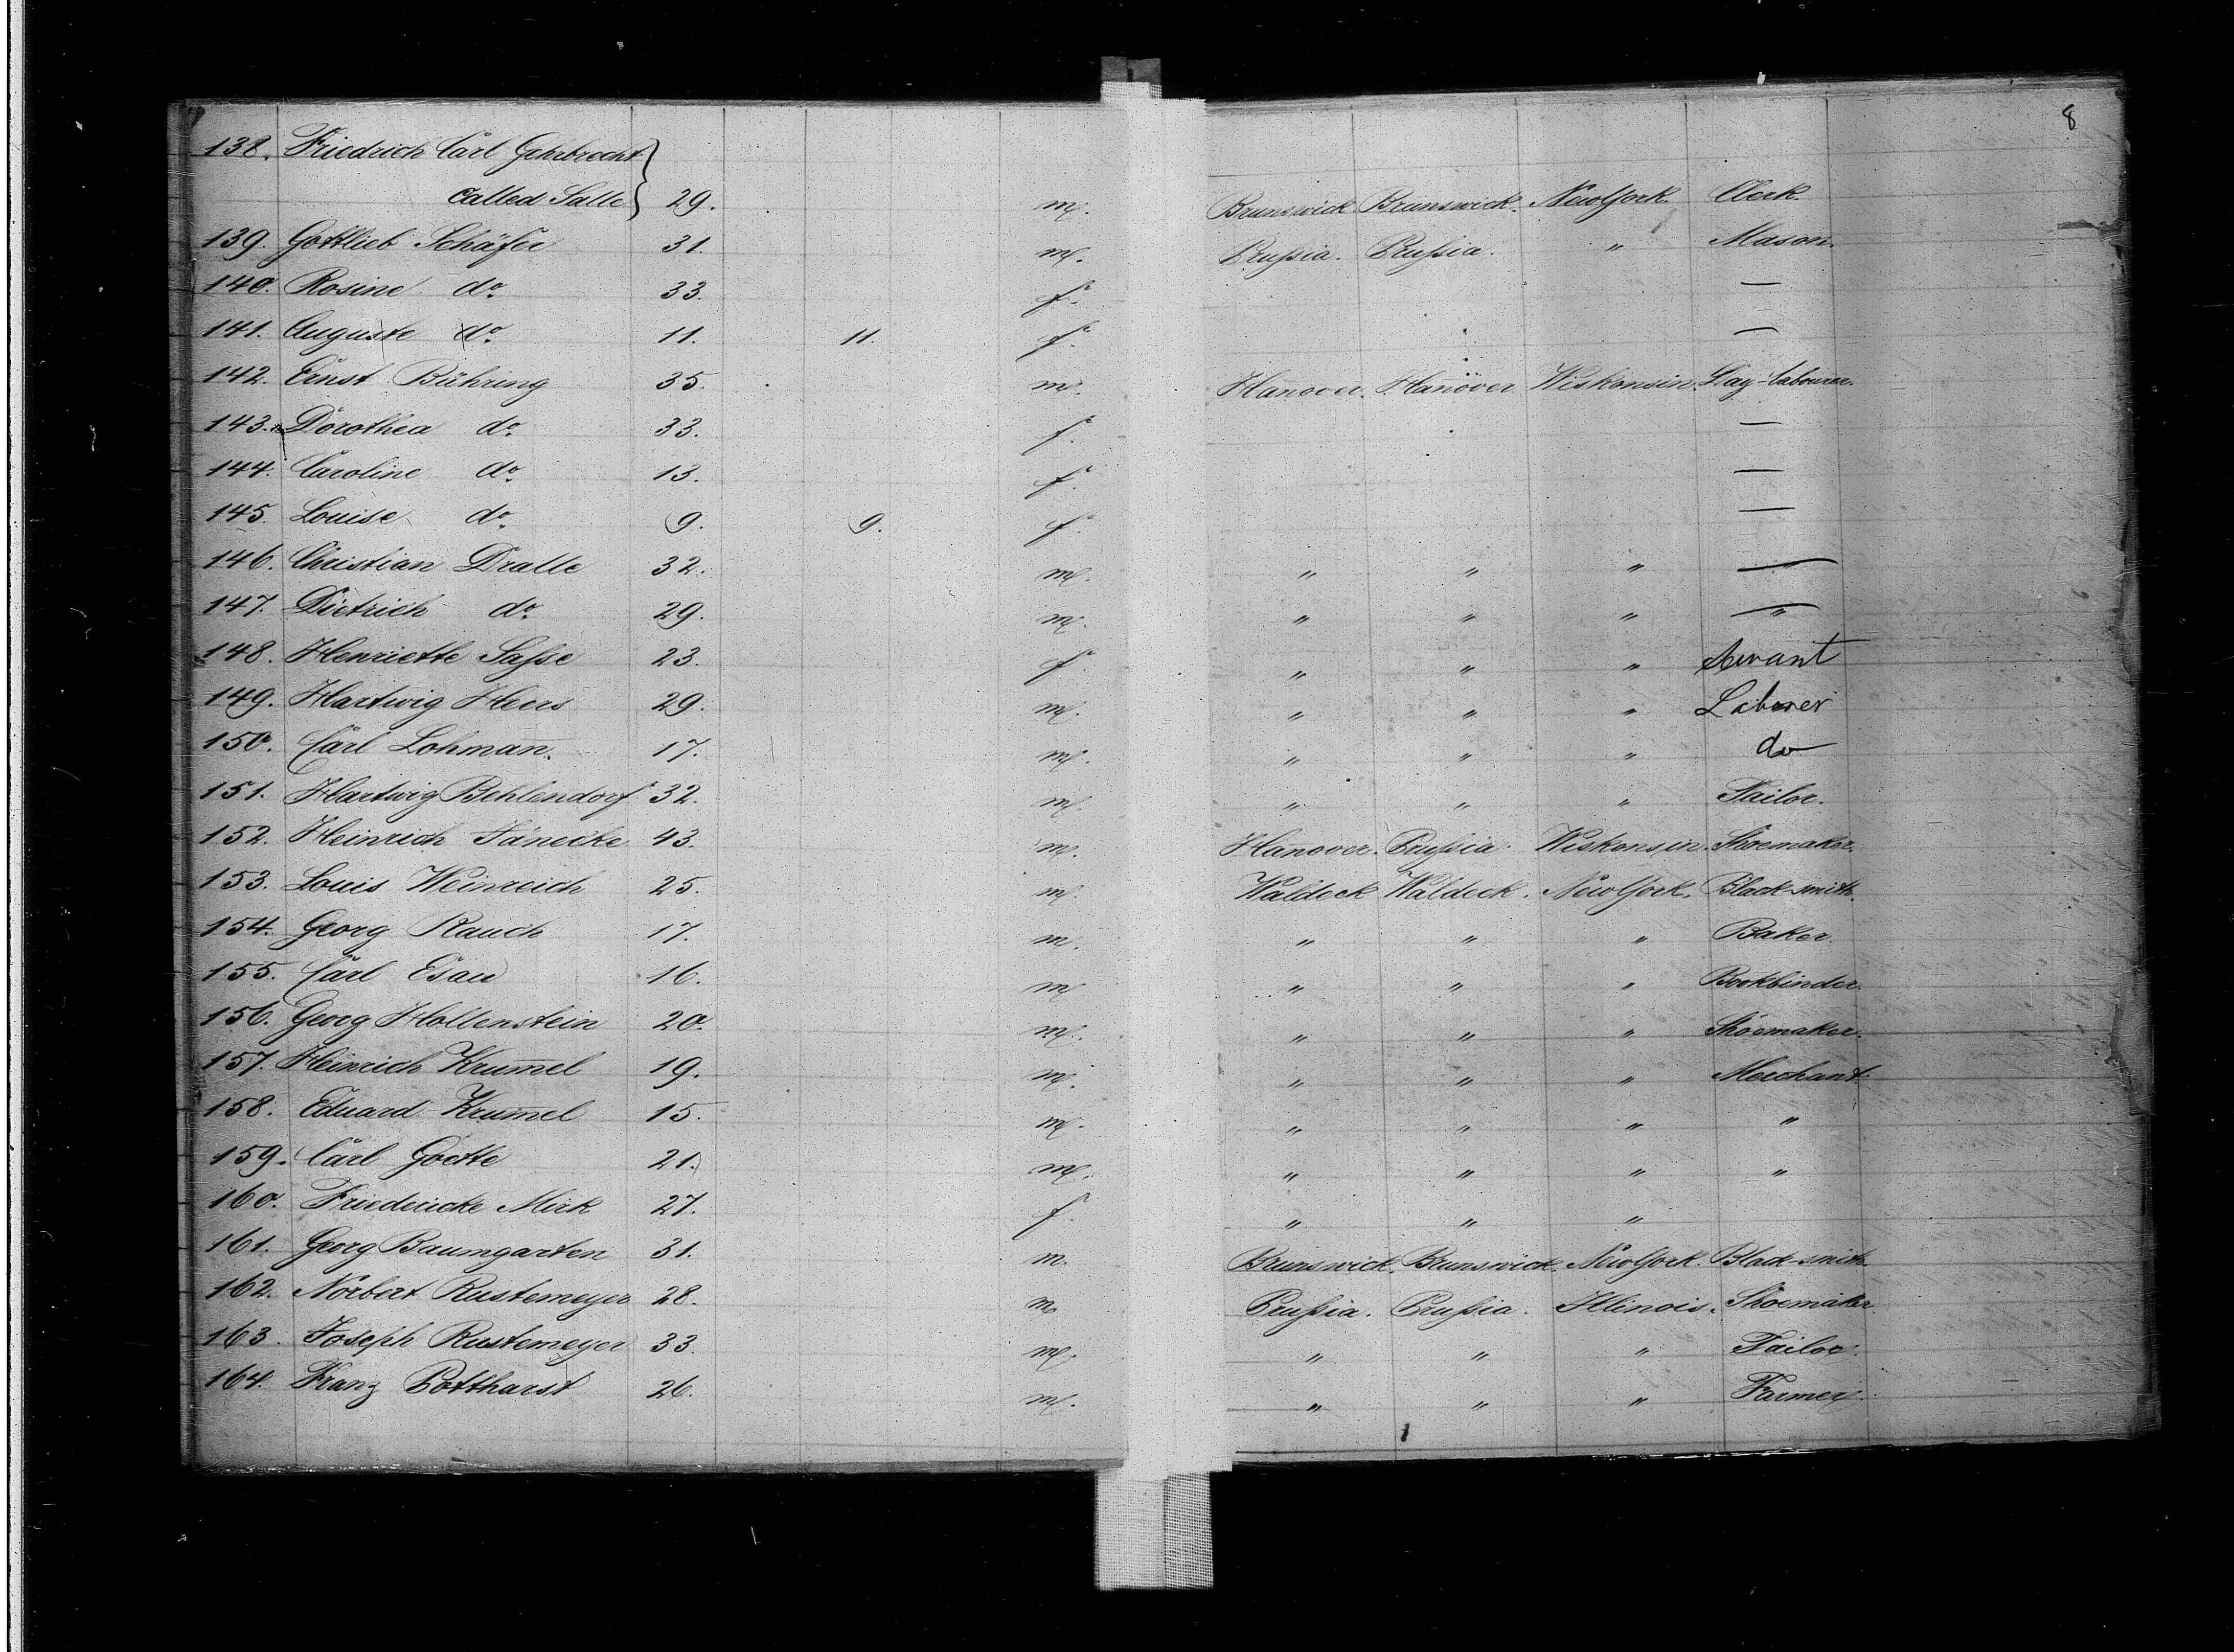 8
138. Friedrich Carl Gehrbrecht
called Salle } 29. m. Brunswick. Brunswick. New York. Clerk.
139. Gottlieb Schäfer 31. m. Prussia. Prussia. " Mason.
140. Rosine do. 33. f. —
141. Auguste do. 11. 11. f. —
142. Ernst Bühring 35. m. Hanover. Hanover Wiskonsin. Day-labourer.
143. Dorothea do. 33. f. —
144. Caroline do. 13. f. —
145. Louise do. 9. 9. f. —
146. Christian Dralle 32. m. " " " —
147. Dietrich do. 29. m. " " " "
148. Henriette Sasse 23. f. " " " Servant
149. Hartwig Heers 29. m. " " " Laborer
150. Carl Lohman̄. 17. m. " " " do
151. Hartwig Behlendorf 32. m. " " " Tailor.
152. Heinrich Jänecke 43. m. Hanover. Prussia. Wiskonsin. Shoemaker.
153. Louis Weinreich 25. m. Waldeck Waldeck. New York. Black-smith.
154. Georg Rauch 17. m. " " " Baker.
155. Carl Esau 16. m " " " Bookbinder.
156. Georg Hollenstein 20. m. " " " Shoemaker.
157. Heinrich Krum̄el 19. m. " " " Merchant.
158. Eduard Krum̄el 15. m. " " " "
159. Carl Goette 21. m. " " " "
160. Friedericke Mirk 27. f. " " "
161. Georg Baumgarten 31. m. Brunswick. Brunswick. New York. Black-smith.
162. Norbert Rustemeyer 28. m. Prussia. Prussia. Illinois. Shoemaker.
163. Joseph Rustemeyer 33. m. " " " Tailor.
164. Franz Pottharst 26. m. " " " Farmer.